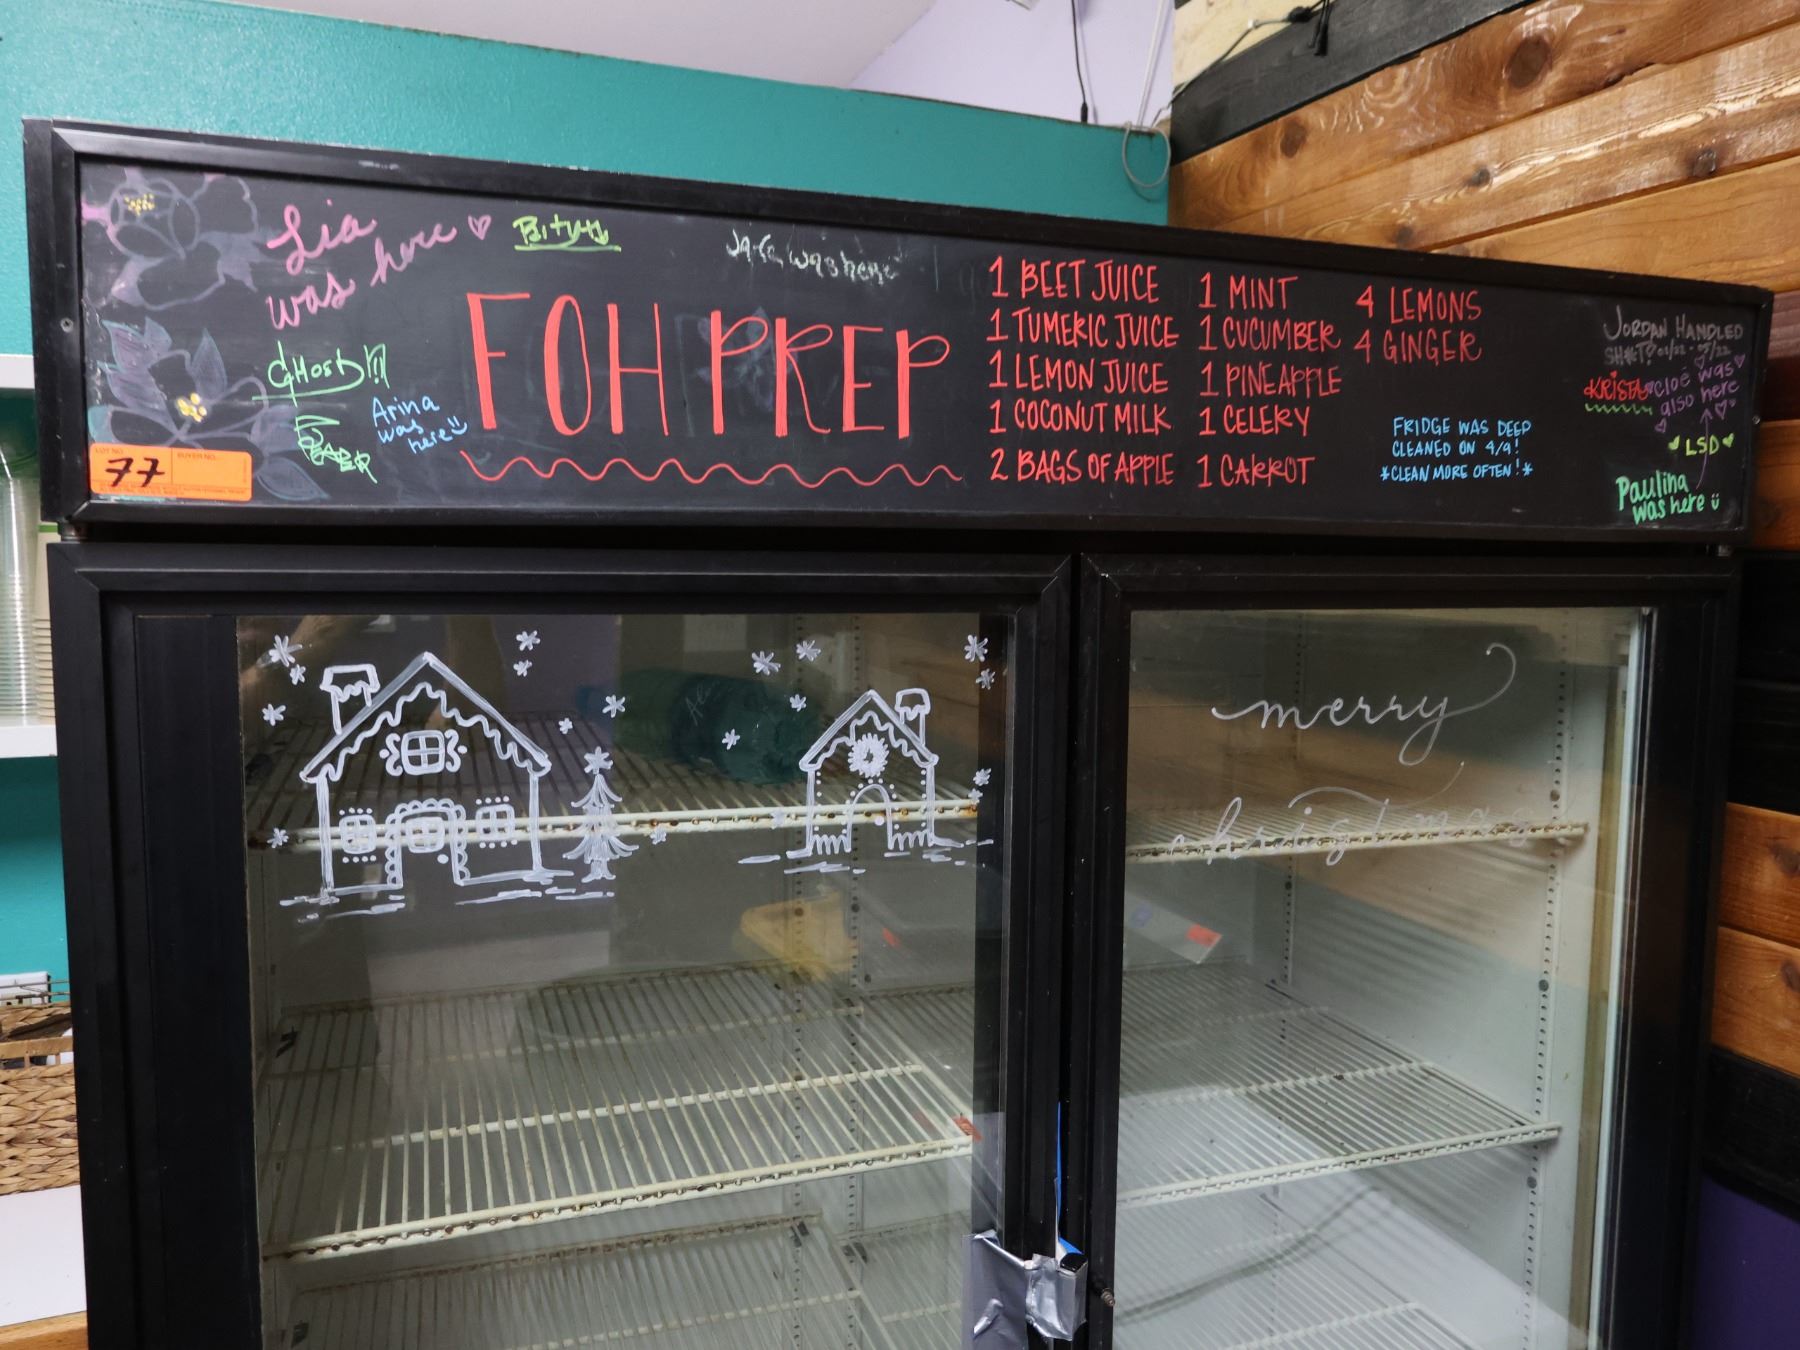 Lia
was here
GHOST!!!
Arina
was
here
LOT NO.
77
BUYER NO.
was here
FOH PREP
1 BEET JUICE
1 TUMERIC JUICE
1 LEMON JUICE
1 COCONUT MILK
2 BAGS OF APPLE
1 MINT
1 CUCUMBER
1 PINEAPPLE
1 CELERY
1 CARROT
4 LEMONS
4 GINGER
FRIDGE WAS DEEP
CLEANED ON 4/9!
*CLEAN MORE OFTEN!*
JORDAN HANDLED
cloé was
also here
LSD
Paulina
was here
merry
christmas